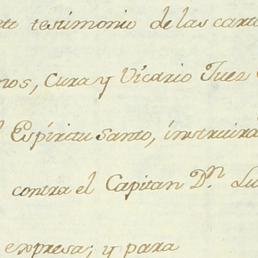 testimonio de las
Cura y Vicario Juez
Espiritu Santo, instruirá
contra el Capitan D.n
expresa; y para